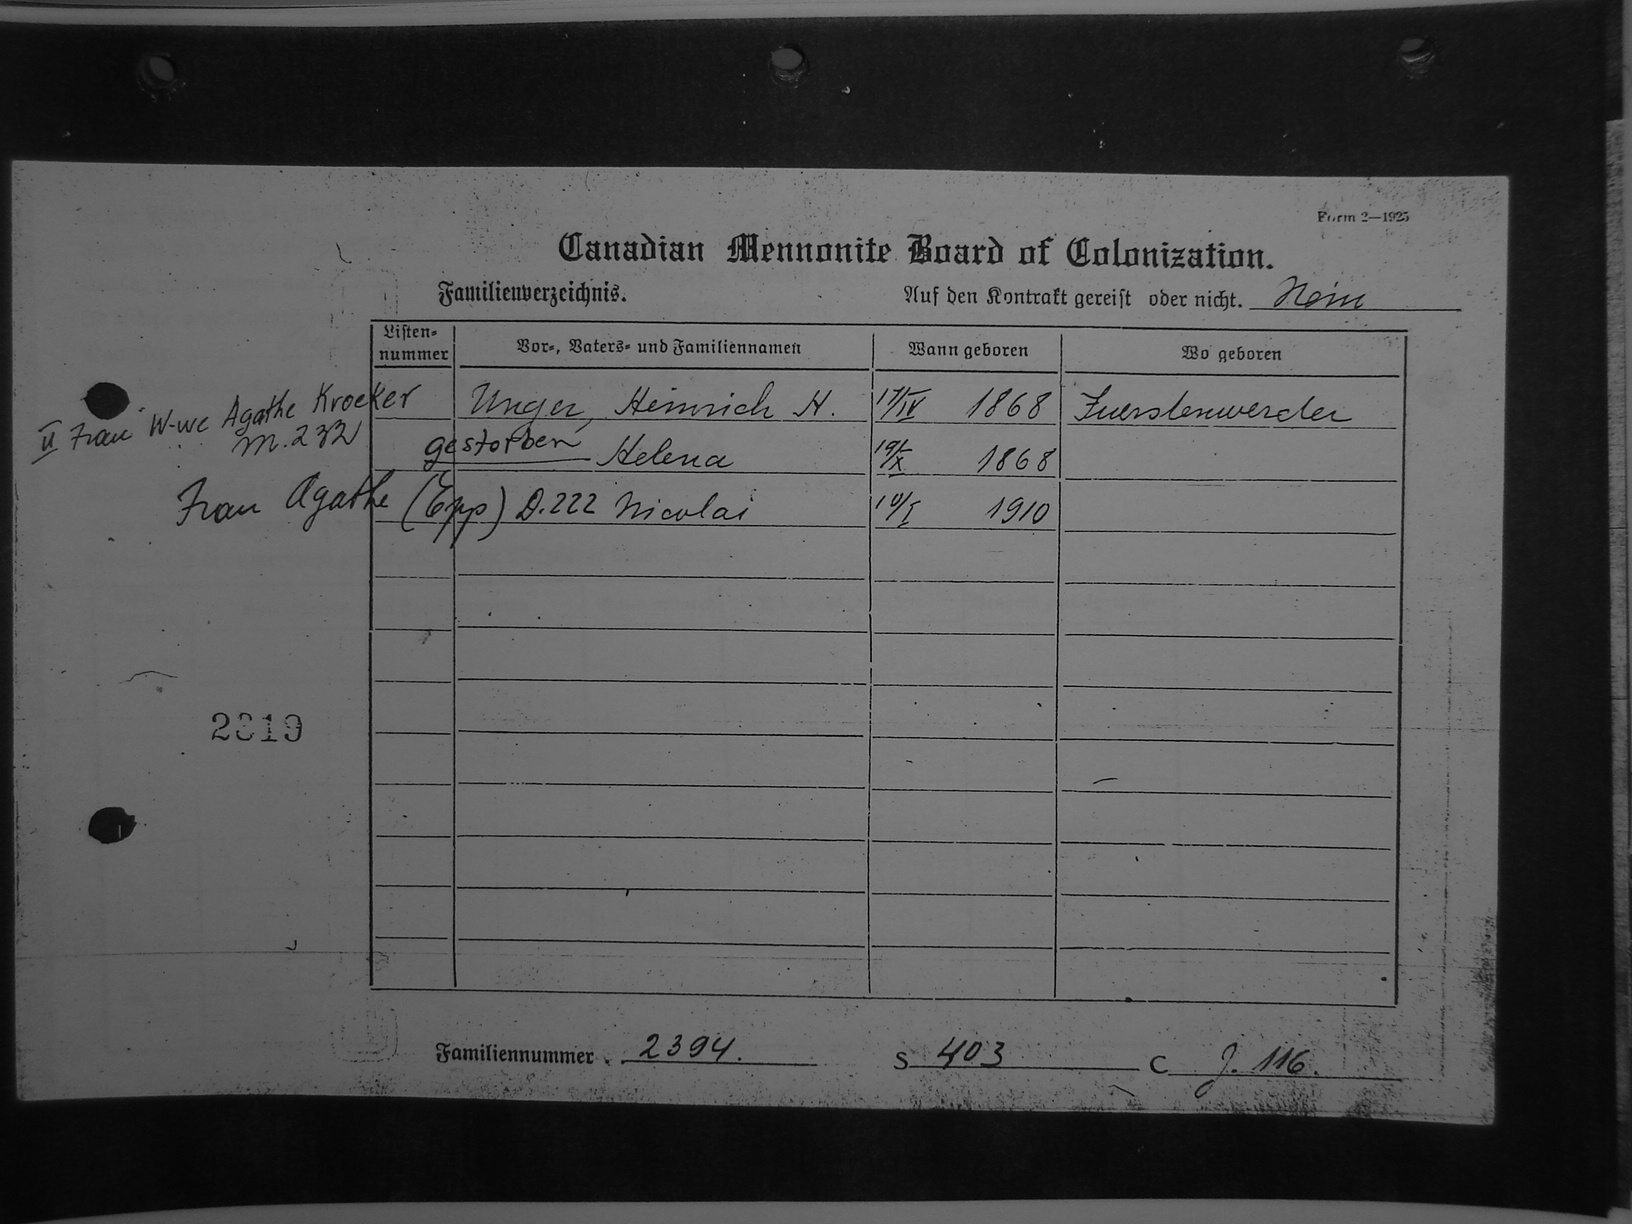 Form 2—1925
Canadian Mennonite Board of Colonization.
Familienverzeichnis. Auf den Kontrakt gereist oder nicht. Nein
Listen-nummer Vor-, Vaters- und Familiennamen Wann geboren Wo geboren
II Frau W-we Agathe Kroeker M.232
Unger, Heinrich H. 17/IV 1868 Fuerstenwerder
gestorben Helena 19/X 1868
Frau Agathe (Epp) D.222 Nicolai 10/I 1910
2819
Familiennummer 2394. S 403 C J. 116.